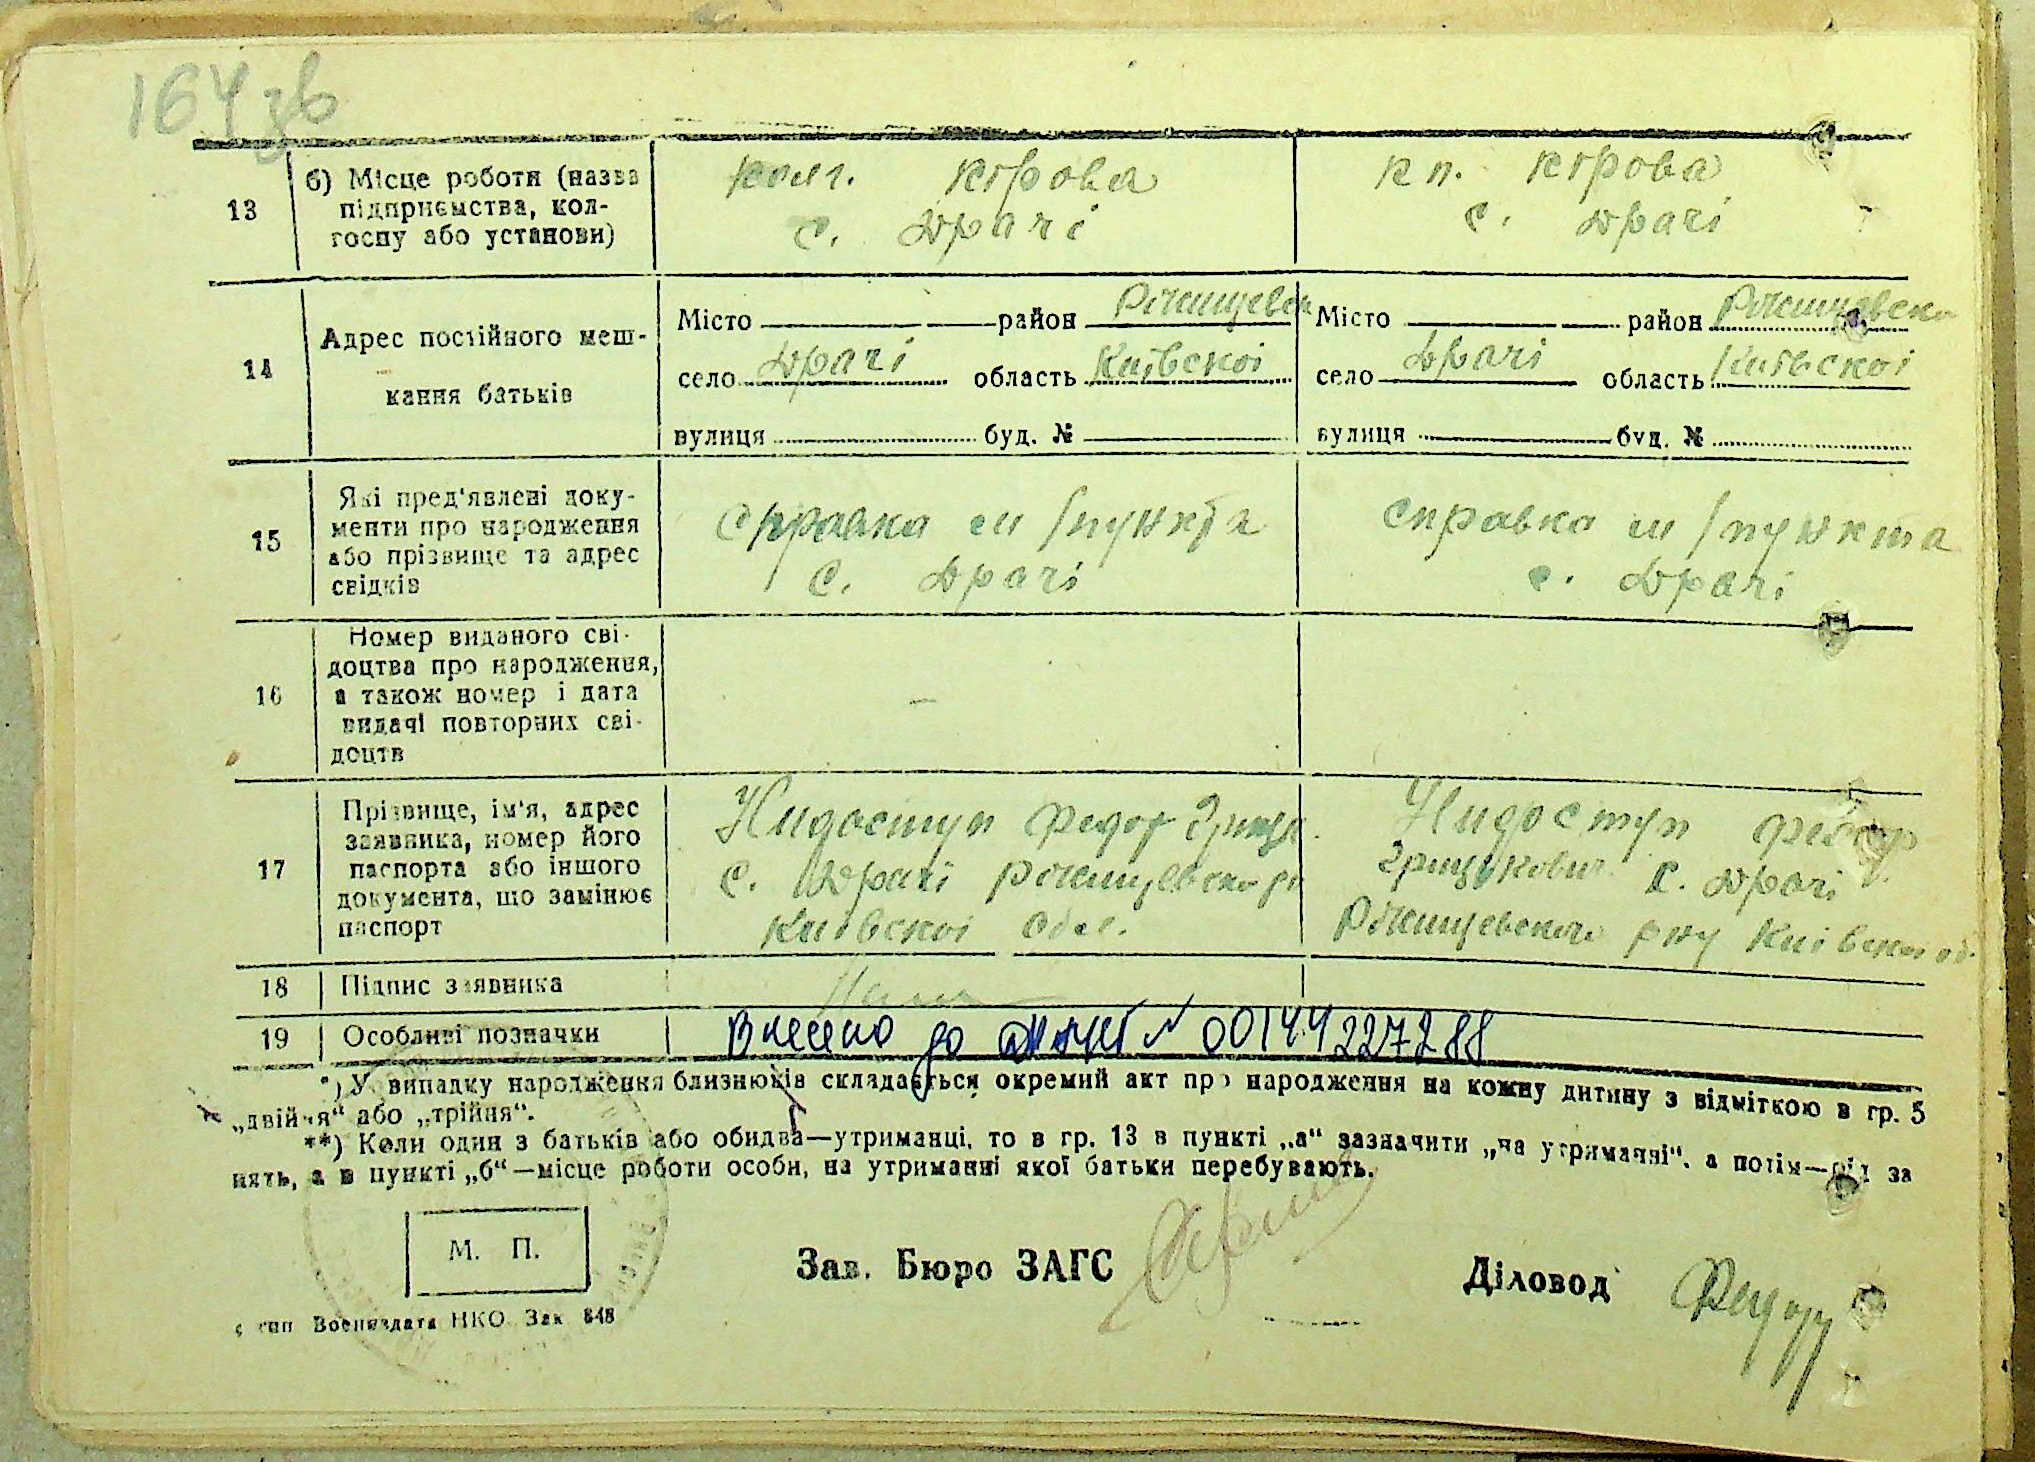 164 зв
13
б) Місце роботи (назва
підприємства, кол-
госпу або установи)
колг. Кірова
с. Драчі
кп. Кірова
с. Драчі
14
Адрес постійного меш-
кання батьків
Місто район Ржищевск
село Драчі область Київскої
вулиця буд. №
Місто район Ржищевско
село Драчі область Київскої
вулиця буд. №
15
Які пред'явлені доку-
менти про народження
або прізвище та адрес
свідків
справка м/пункта
с. Драчі
справка м/пункта
с. Драчі
16
Номер виданого сві-
доцтва про народження,
а також номер і дата
видачі повторних сві-
доцтв
17
Прізвище, ім'я, адрес
заявника, номер його
паспорта або іншого
документа, що замінює
паспорт
Нидоступ Федор Гриц.
с. Драчі Ржищевско рн
Київскої обл.
Нидоступ Федор
Грицькович с. Драчі
Ржищевского рну Київскої об.
18
Підпис заявника
19
Особливі позначки
Внесено до ДРАЦС № 00144227288
*) У випадку народження близнюків складається окремий акт про народження на кожну дитину з відміткою в гр. 5
„двійня“ або „трійня“.
**) Коли один з батьків або обидва—утриманці, то в гр. 13 в пункті „а“ зазначити „на утриманні“, а потім—рід за
нять, а в пункті „б“—місце роботи особи, на утриманні якої батьки перебувають.
М. П.
Зав. Бюро ЗАГС
Діловод
тип Воениздата НКО Зак 848